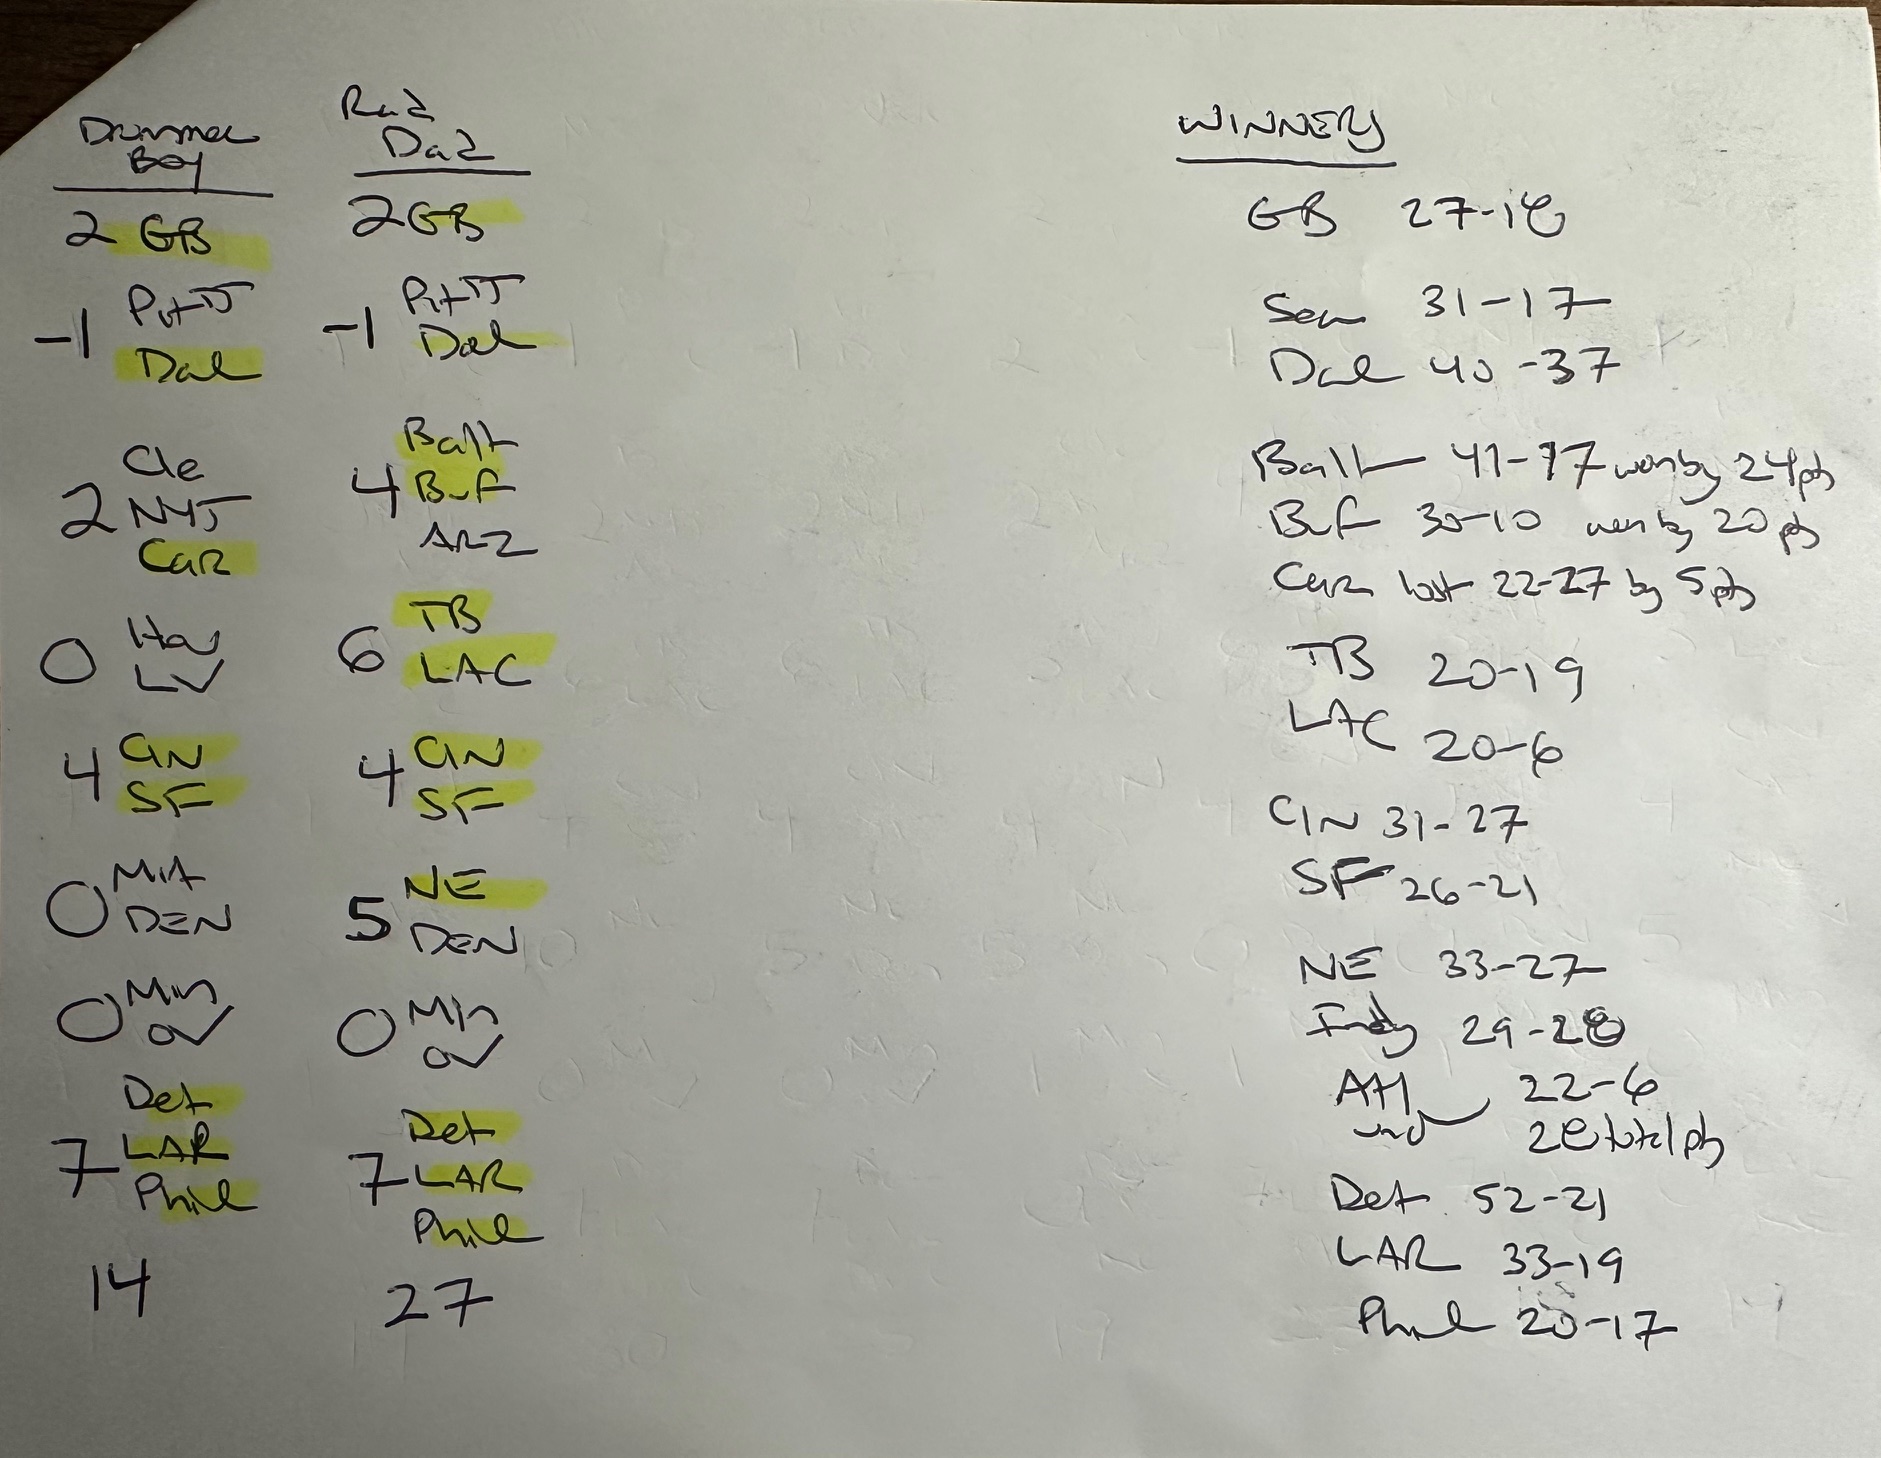 Drummer
Boy
2 GB
-1 Pitt
Dal
Cle
2 NYJ
Car
0 Hou
LV
4 CIN
SF
0 MIA
DEN
0 Min
OV
Det
7 LAR
Phil
14
Raz
Daz
2 GB
-1 Pitt
Dal
Balt
4 Buf
ARZ
6 TB
LAC
4 CIN
SF
5 NE
DEN
0 Min
OV
Det
7 LAR
Phil
27
WINNERS
GB 27-18
Sea 31-17
Dal 40-37
Balt 41-17 won by 24 pts
Buf 30-10 won by 20 pts
Car lost 22-27 by 5 pts
TB 20-19
LAC 20-6
CIN 31-27
SF 26-21
NE 33-27
Indy 29-28
Atl 22-6
und 28 total pts
Det 52-21
LAR 33-19
Phil 20-17